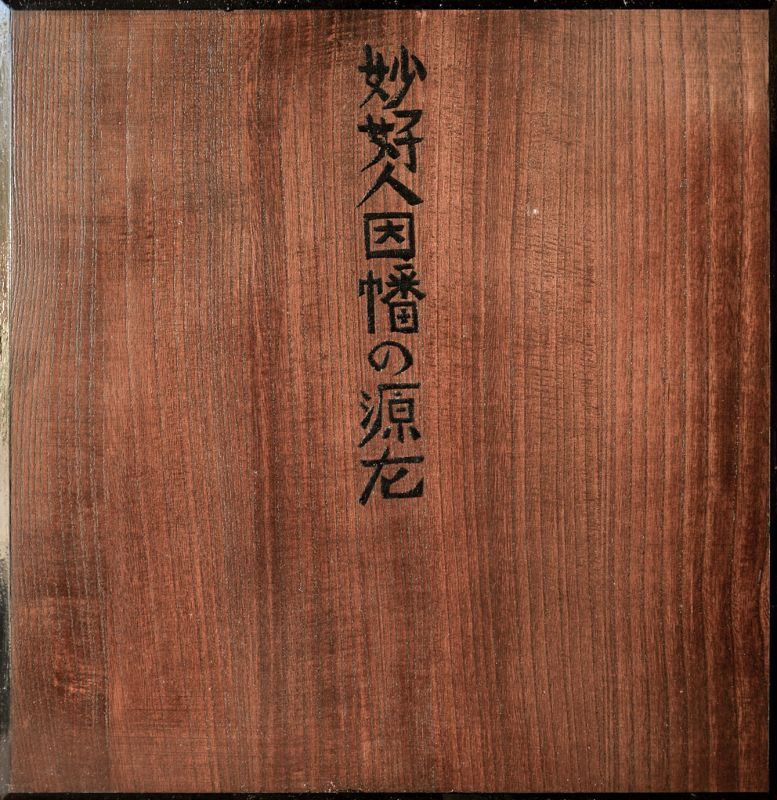 妙好人因幡の源左